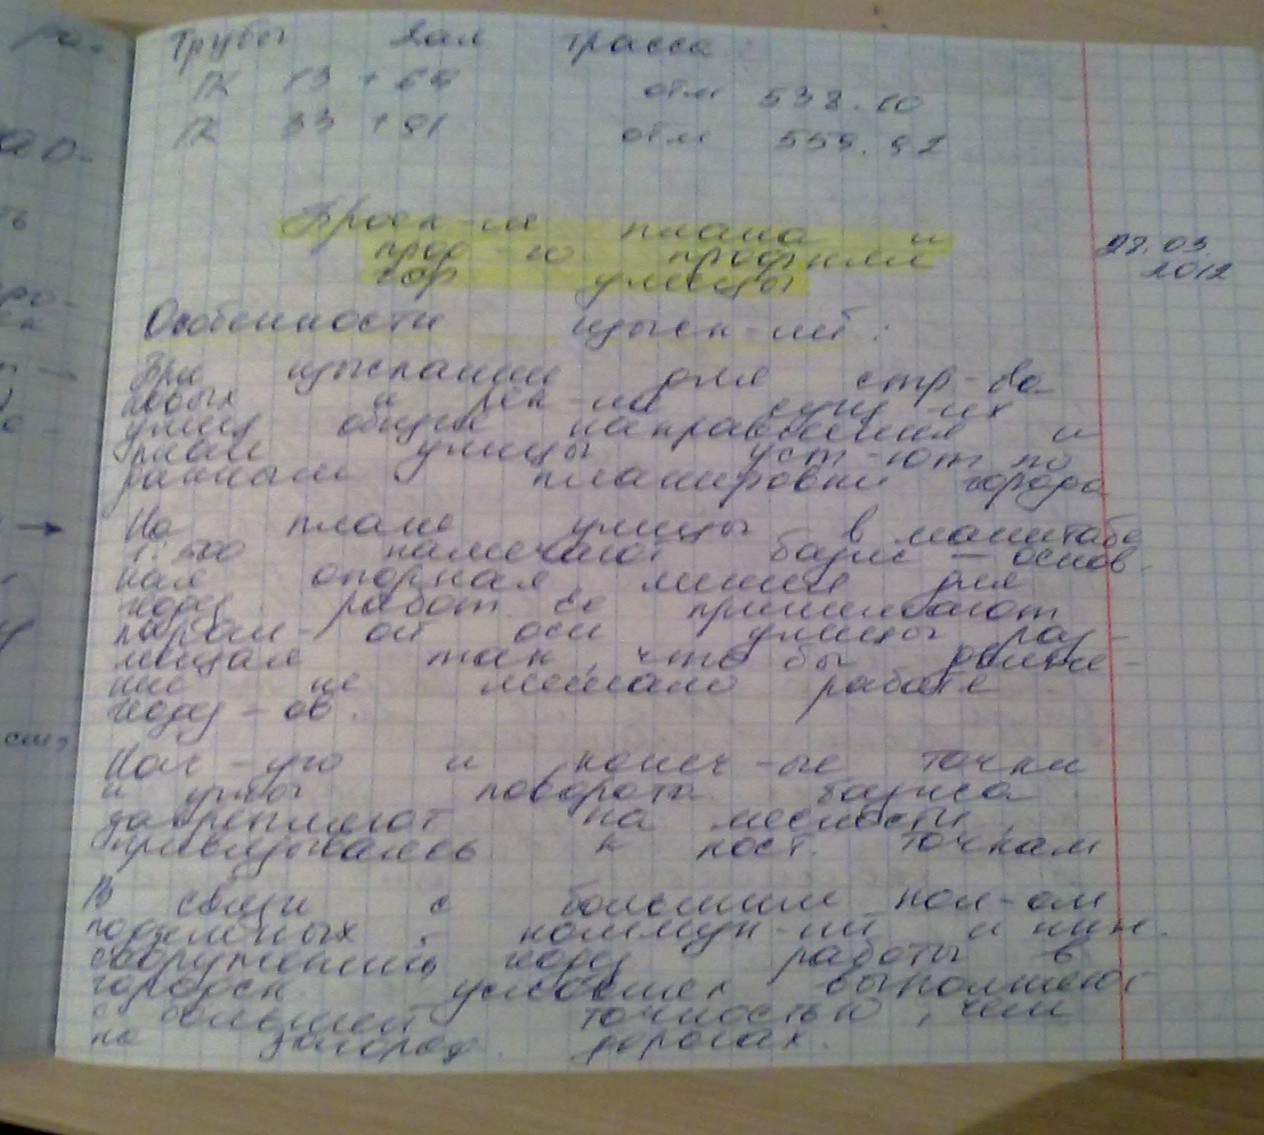 Трубы 2ая трасса:
ПК 13 + 60 отм 538.10
ПК 33 + 81 отм 559.92
Проек-ие плана и
прод-го профиля
гор улицы
28.03.
2012
Особенности изыск-ий:
При изыскании для стр-ва
новых и рек-ии сущ-их
улиц общие направления и
план улицы уст-ют по
данным планировки города
На плане улицы в масштабе
1:500 намечают базис – основ-
ная опорная линия для
геод работ. Её принимают
паралл-ой оси улицы раз-
мещая так, что бы движе-
ние не мешало работе
геод-ов.
Нач-ую и конеч-ые точки
и углы поворота базиса
закрепляют на местности,
привязываясь к пост. точкам
В связи с большим кол-ом
подземных коммун-ий и инж.
сооружений геод работы в
городск. условиях выполняют
с большей точностью, чем
на загород. дорогах.